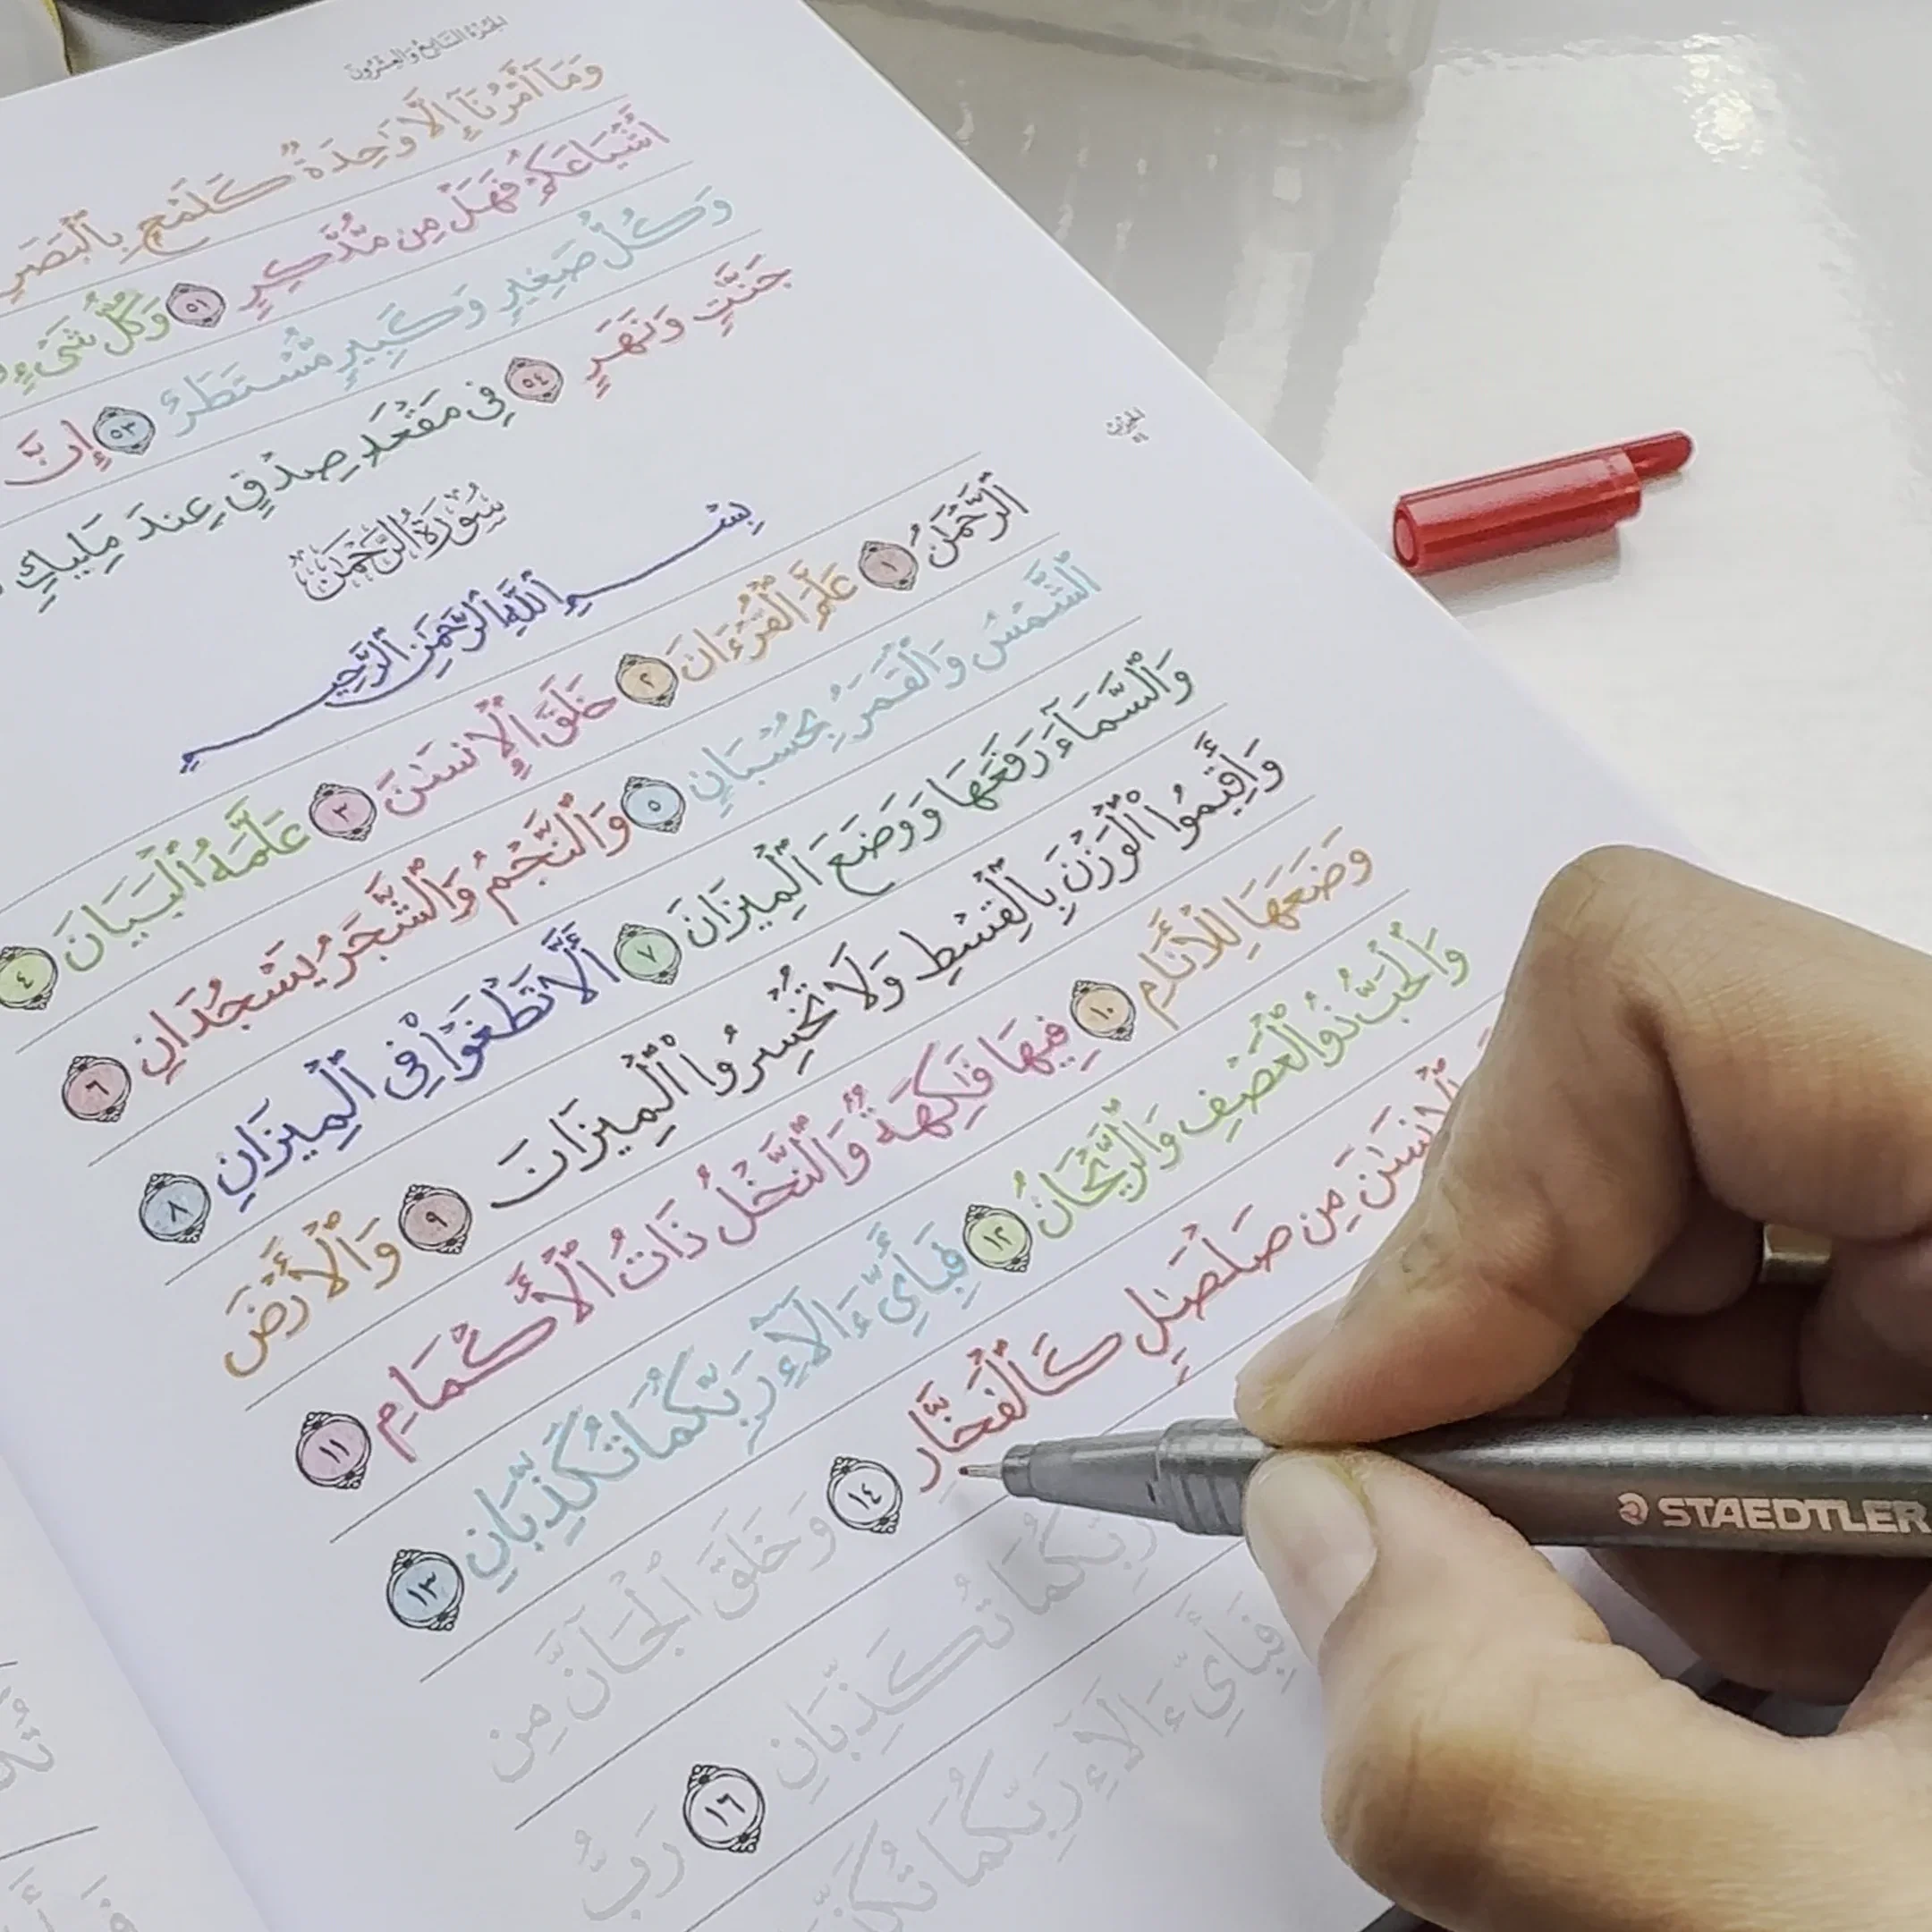 الجُزْءُ السَّابِعُ وَالعِشْرُونَ
وَمَآ أَمْرُنَآ إِلَّا وَٰحِدَةٌ كَلَمْحٍۭ بِٱلْبَصَرِ
أَشْيَاعَكُمْ فَهَلْ مِن مُّدَّكِرٍ ٥١ وَكُلُّ شَىْءٍ
وَكُلُّ صَغِيرٍ وَكَبِيرٍ مُّسْتَطَرٌ ٥٣ إِنَّ
جَنَّٰتٍ وَنَهَرٍ ٥٤ فِى مَقْعَدِ صِدْقٍ عِندَ مَلِيكٍ
سُورَةُ الرَّحْمَٰن
بِسْمِ ٱللَّهِ ٱلرَّحْمَٰنِ ٱلرَّحِيمِ
ٱلرَّحْمَٰنُ ١ عَلَّمَ ٱلْقُرْءَانَ ٢ خَلَقَ ٱلْإِنسَٰنَ ٣ عَلَّمَهُ ٱلْبَيَانَ ٤
ٱلشَّمْسُ وَٱلْقَمَرُ بِحُسْبَانٍ ٥ وَٱلنَّجْمُ وَٱلشَّجَرُ يَسْجُدَانِ ٦
وَٱلسَّمَآءَ رَفَعَهَا وَوَضَعَ ٱلْمِيزَانَ ٧ أَلَّا تَطْغَوْا۟ فِى ٱلْمِيزَانِ ٨
وَأَقِيمُوا۟ ٱلْوَزْنَ بِٱلْقِسْطِ وَلَا تُخْسِرُوا۟ ٱلْمِيزَانَ ٩ وَٱلْأَرْضَ
وَضَعَهَا لِلْأَنَامِ ١٠ فِيهَا فَٰكِهَةٌ وَٱلنَّخْلُ ذَاتُ ٱلْأَكْمَامِ ١١
وَٱلْحَبُّ ذُو ٱلْعَصْفِ وَٱلرَّيْحَانُ ١٢ فَبِأَىِّ ءَالَآءِ رَبِّكُمَا تُكَذِّبَانِ ١٣
ٱلْإِنسَٰنَ مِن صَلْصَٰلٍ كَٱلْفَخَّارِ ١٤ وَخَلَقَ ٱلْجَآنَّ مِن
رَبِّكُمَا تُكَذِّبَانِ ١٦ رَبُّ
فَبِأَىِّ ءَالَآءِ رَبِّكُمَا
STAEDTLER